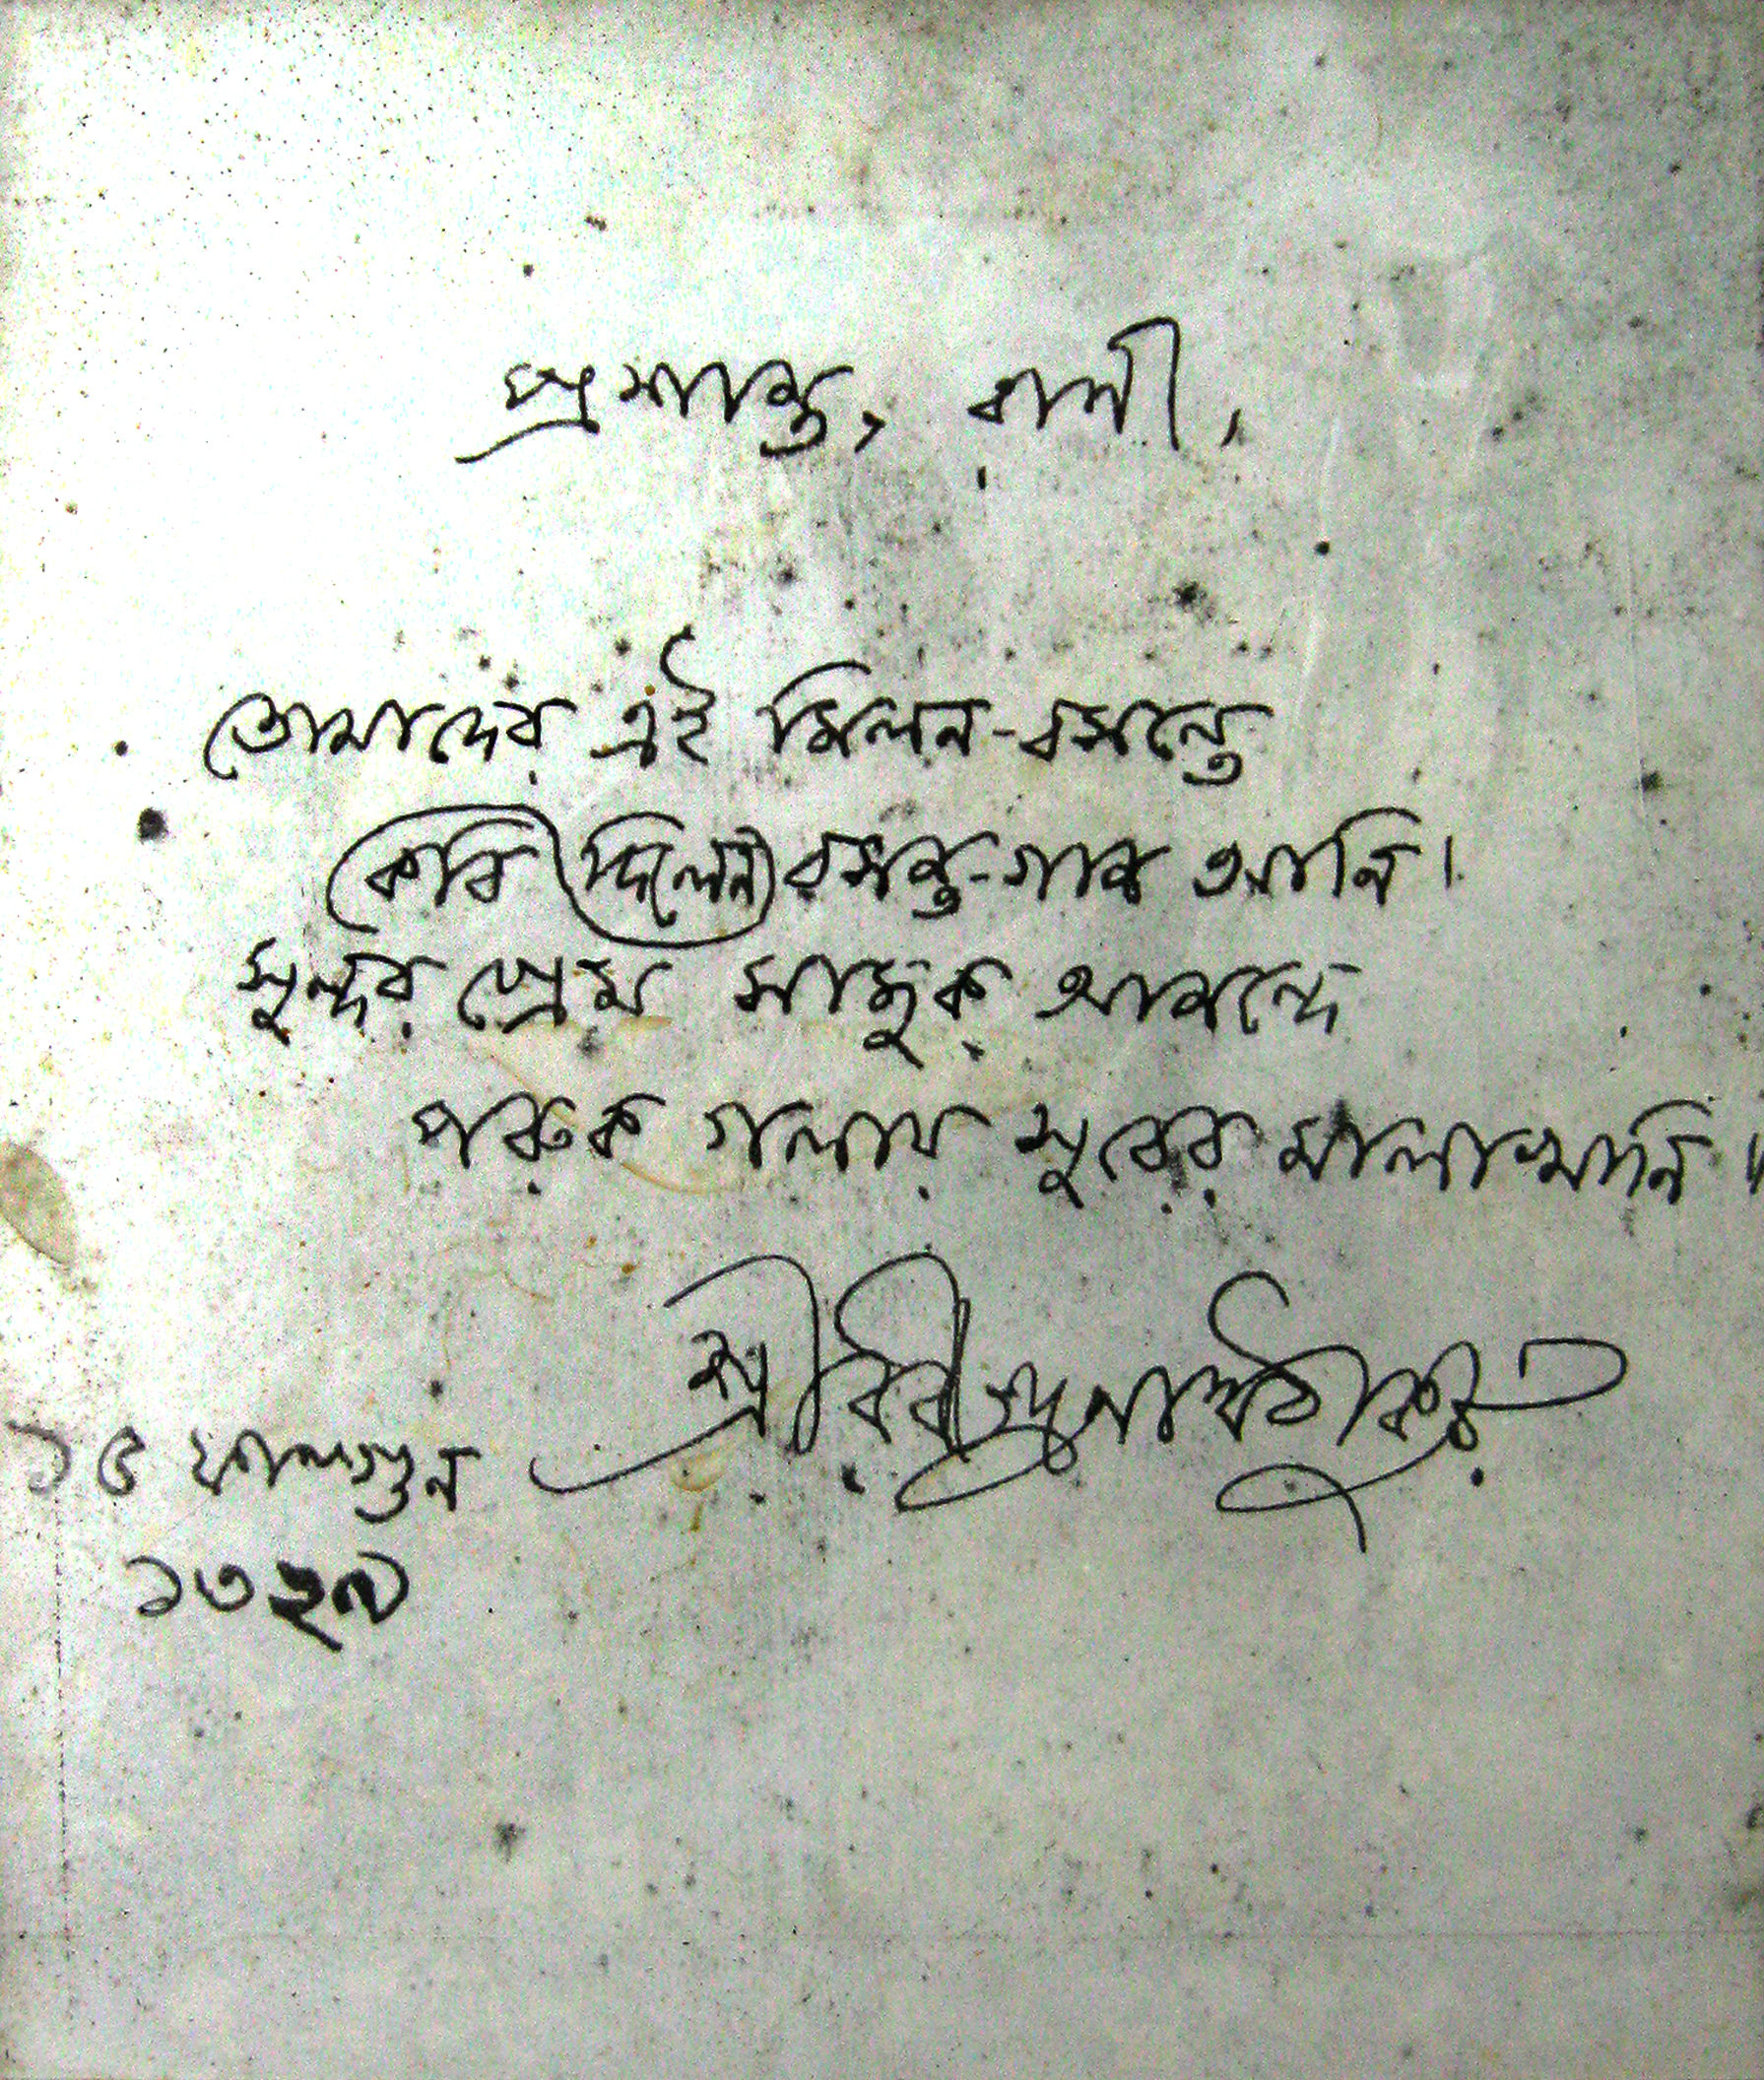 প্রশান্ত, রানী,
তোমাদের এই মিলন-বসন্তে
কবি দিলেন বসন্ত-গান আনি।
সুন্দর প্রেম সাজুক আনন্দে
পরুক গলায় সুরের মালাখানি॥
শ্রীরবীন্দ্রনাথ ঠাকুর
১৫ ফাল্গুন
১৩২৯